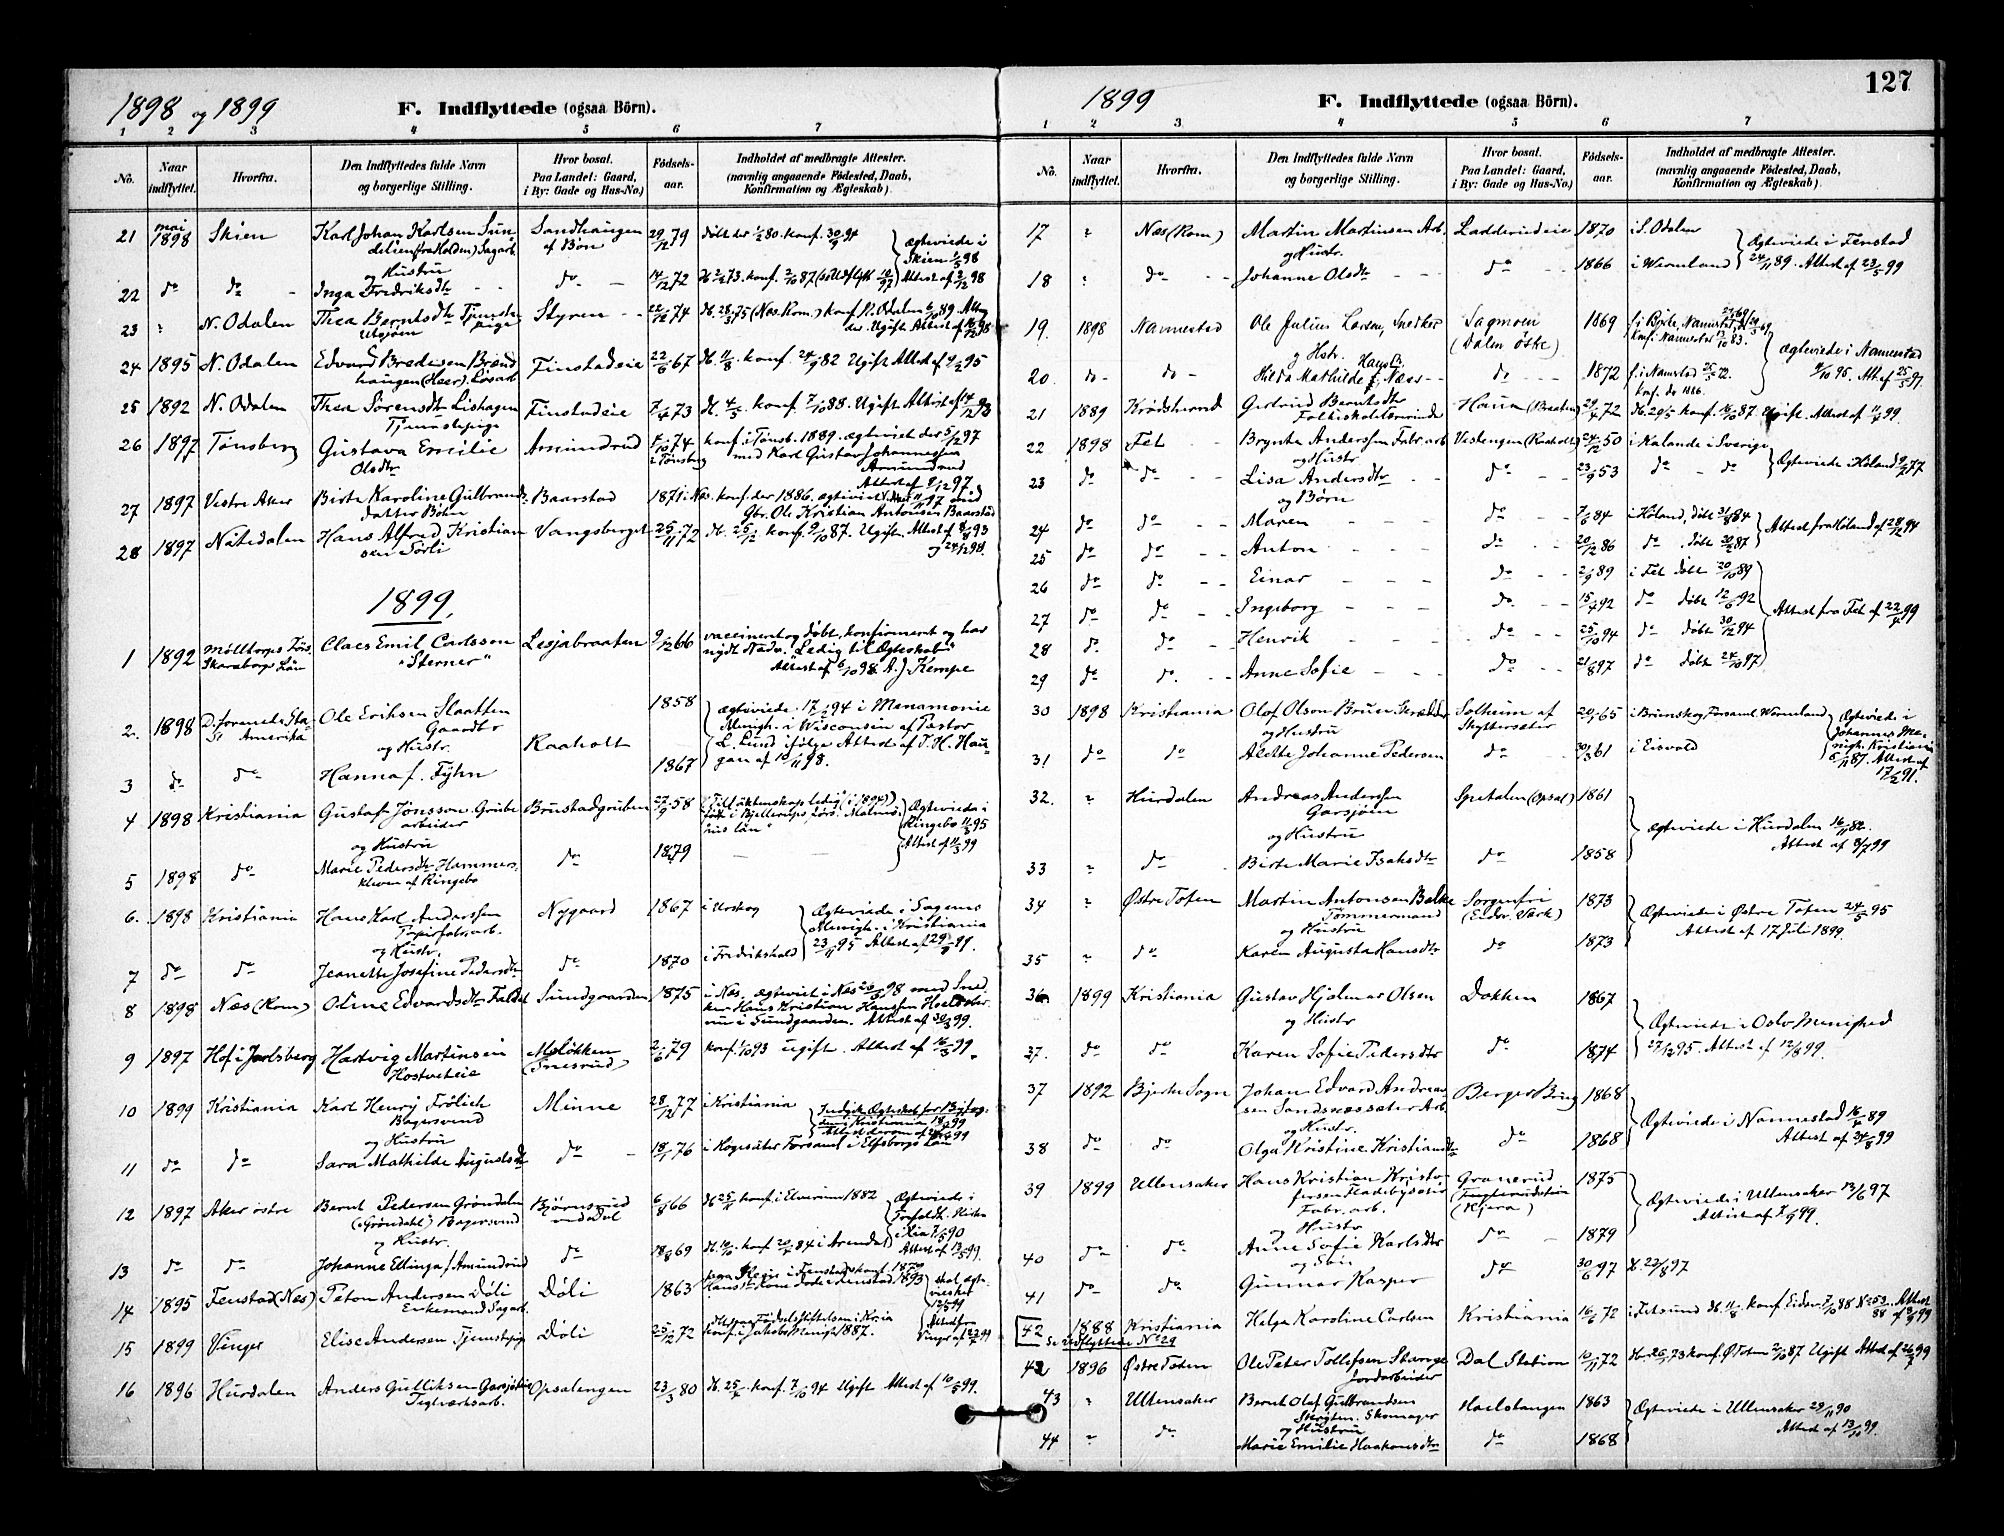 1898 og 1899
F. Indflyttede (ogsaa Börn).
1 2 3 4 5 6 7
No. Naar indflyttet. Hvorfra. Den Indflyttedes fulde Navn og borgerlige Stilling. Hvor bosat. Paa Landet: Gaard, i By: Gade og Hus-No.) Födsels-aar. Indholdet af medbragte Attester. (navnlig angaaende Födested, Daab, Konfirmation og Ægteskab).
21 mai 1898 Skien Karl Johan Karlsen Sun-
Sandhaugen af Bön 29/12 79 døbt der 1/2 80. konf. 30/9 94
og Hustru
Ægteviede i Skien
22 do do Inga Fredriksdtr do 14/12 72
23 " N. Odalen Thea Berntsdtr Tjeneste-
pige
Styren 22/12 74
24 1895 N. Odalen Edvard Bredesen Brænd-
haugen (Heer) Løsarb.
Finstadeie 22/6 67 db. 11/8. konf 24/9 82 Ugift Attest af 9/2 95
25 1892 N. Odalen Thea Sørensdtr Lishagen
Tjenestepige
Finstadeie 7/4 73 db. 4/5. konf. 7/10 88. Ugift Attest af 14/12 93
26 1897 Tønsberg Gustava Emilie
Olsdtr
Amundrud 7/10 74 i Tønsberg
konf. i Tønsb. 1889. ægteviet der 5/12 97
med Karl Gustav Johannessen
Amundrud
Attest af 8/12 97
27 1897 Vestre Aker Birte Karoline Gulbrands-
datter Bøhn
Baarstad 1871 i Næs. konf. der 1886. ægteviet
Gbr. Ole Kristian Antonsen Baarstad
28 1897 Nitedalen Hans Alfred Kristian-
sen Sørli
Vangsberget 25/11 72 db. 25/12 konf. 9/10 87. Ugift. Attest af 8/8 93
og 24/12 98.
1899.
1 1892 Mölltorps Förs.
Skaraborgs Län
Claes Emil Carlsson
"Sterner"
Lesjabraaten 9/12 66 vaccineret og døbt, konfirmeret og har
nydt Nadv. Ledig til Ægteskab
Attest af 6/10 98 A. J. Kempe
2. 1898 D. forenede Sta-
ter Amerika
Ole Eriksen Slaatten
Gaardbr
og Hustr.
Raaholt 1858
ægteviede 17/2 94 i Menamonie
Menigh. i Wisconsin af Pastor
L. Lund ifølge Attest af T. H. Hau-
gan af 10/11 98.
3 do do Hanna f. Fyhn 1867
4 1898 Kristiania Gustaf Jönsson. Grube-
arbeider
og Hustru
Brustadgruben 27/9 58
"Till äktenskap ledig (i 1894)
Ægteviede i Ringebo 11/3 95
Attest af 11/3 99
5 1898 do Marie Pedersdtr Hammers-
kleven af Ringebo
do 1879
6. 1898 Kristiania Hans Karl Anderssen
Papirfabr. arb.
og Hustr.
Nygaard 1867 i Urskog
Ægteviede i Sagenes
Menigh. i Kristiania
23/11 95 Attest af 29/9 99.
7 do do Jeanette Josefine Pedersdtr do 1870 i Fredrikshald
8 1898 Næs (Rom.) Oline Edvardsdtr Faldet Sundgaarden 1875
i Næs. ægteviet i Næs 26/5 98 med Sned-
ker Hans Kristian Hanssen
i Sundgaarden. Attest af 30/3 99.
9 1897 Hof i Jarlsberg Hartvig Martinsen
Hostveteie
Meløkken
(Snesrud)
2/6 79 konf. 1/10 93 ugift. Attest af 16/3 99.
10 1899 Kristiania Karl Henry Frölich
Bagersvend
og Hustru
Minne 28/12 77 i Kristiania
11 do do Sara Mathilde Augustsdtr do 18/1 76 i Högesäter Forsaml. i Elfsborgs Län
12 1897 Aker østre Bernt Pedersen Grøndalen
(Grøndahl) Bagersvend
og Hustr.
Bjørnsrud
ved Døl
6/8 66 db 25/11 konf. i Elverum 1882
13 do do Johanne Ellinga Amundsrud do 18/8 69
14 1895 Fenstad (Næs) Peton Andersen Døli
Enkemand Sagarb.
Døli 1863
15 1899 Vinger Elise Andersen Tjenestepige Døli 25/12 72
Attest fra Vinger af 27/7 99
16 1896 Hurdalen Anders Gulliksen Garsjøen
Teglværksarb.
Opsalengen 23/3 80 db. 25/4. konf. 7/10 94 Ugift Attest af 10/5 99.
127
1899
F. Indflyttede (ogsaa Börn).
1 2 3. 4 5 6 7
No. Naar indflyttet. Hvorfra. Den Indflyttedes fulde Navn og borgerlige Stilling. Hvor bosat. Paa Landet: Gaard, i By: Gade og Hus-No.) Födsels-aar. Indholdet af medbragte Attester. (navnlig angaaende Födested, Daab, Konfirmation og Ægteskab)
17 " Næs (Rom) Martin Martinsen Arb.
og Hustr.
Ladderudeie 1870 i S. Odalen
Ægteviede i Fenstad
24/11 89. Attest af 23/5 99
18 " do Johanne Olsdtr do 1866 i Wermland
19. 1898 Nannestad Ole Julius Larsen, Snedker
og Hstr.
Sagmoen
(Dalen østre)
1869
Konf. i Nannestad 83.
Ægteviede i Nannestad
20. do do Hilda Mathilde f. Næss do 1872
21 1889 Krødsherred Gertrud Berntsdtr
Folkeskolelærerinde
Haua (Braaten) 29/4 72 Ugift. Attest af 11/6 99.
22 1898 Fet Brynte Anderssen Fabr. arb.
og Hustr
Vestengen (Raaholt) 24/12 50 i Kalande i Sverige
Ægteviede i Høland 9/2 77
23 do do Lisa Andersdtr
og Børn
do 23/9 53 do do
24 do do Maren do 7/6 84 i Høland, døbt 31/8 84
Attest fra Høland af 28/12 94
25 do do Anton do 20/12 86 do døbt 20/2 87
26 do do Einar do 2/9 89 i Fet døbt 20/10 89
27 do do Ingeborg do 15/4 92 do døbt 12/6 92
Attest fra Fet af 22/4 99
28 do do Henrik do 25/10 94 do døbt 30/12 94
29 do do Anne Sofie do 21/8 97 do døbt 24/10 97
30 1898 Kristiania Olof Olson Bruen
og Hustru
Solheim af
Skyttersæter
20/2 65 i Brunskog Forsaml. Wermland
Ægteviede i
Johannes Me-
nigh. Kristiania
31 do do Alette Johanne Pedersen do 30/3 61 i Eisvold
32. " Hurdalen Andreas Anderssen
Garsjøen
og Hustru
Spetalen (Opsal) 1861
Ægteviede i Hurdalen 16/11 82.
Attest af 8/7 99
33 " do Birte Marie Isaksdtr do 1858
34 " Østre Toten Martin Antonsen Balke
Tømmermand
og Hustru
Sorgenfri
(Eidsv. Værk)
1873
Ægteviede i Østre Toten 24/5 95
Attest af 17 Juli 1899.
35 " do Karen Augusta Hansdtr do 1873
36 1899 Kristiania Gustav Hjalmar Olsen
og Hustr
Dokken 1867
Ægteviede i Oslo Menighed
27/12 95. Attest af 12/8 99.
37. do do Karen Sofie Pedersdtr do 1874
37 1892 Bjerke Sogn Johan Edvard Andrea-
sen Sandsnæssæter Arb.
og Hustr.
Berger Bring 1868
Ægteviede i Nannestad 16/4 89
Attest af 24/8 99
38 do do Olga Kristine Kristiansdtr do 1868
39 1899 Ullensaker Hans Kristian Kristo-
fersen Fladebyseter
Fabr. arb.
og Hustr
Granerud
(Kjera)
1875
Ægteviede i Ullensaker 13/6 97
Attest af 7/9 99.
40 do do Anne Sofie Karlsdtr
og Søn
do 1879
41 do do Gunnar Kasper do 30/6 97 db. 22/8 97
42 1888 Kristiania Helga Karoline Carlsen Kristiania 16/6 72
Se Udflyttede No 29
42 1896 Østre Toten Ole Peter Tollefsen Stange
Jordarbeider
Dal Station 10/11 72 db. 26/1 73 konf. Ø Toten 2/10 87 Ugift Attest af 26/9 99
43 " Ullensaker Bernt Olaf Gulbrandsen
Skomager
og Hustru
Haelstangen 1863
Ægteviede i Ullensaker 29/11 90
Attest af 13/10 99.
44 " do Marie Emilie Haakonsdtr do 1868